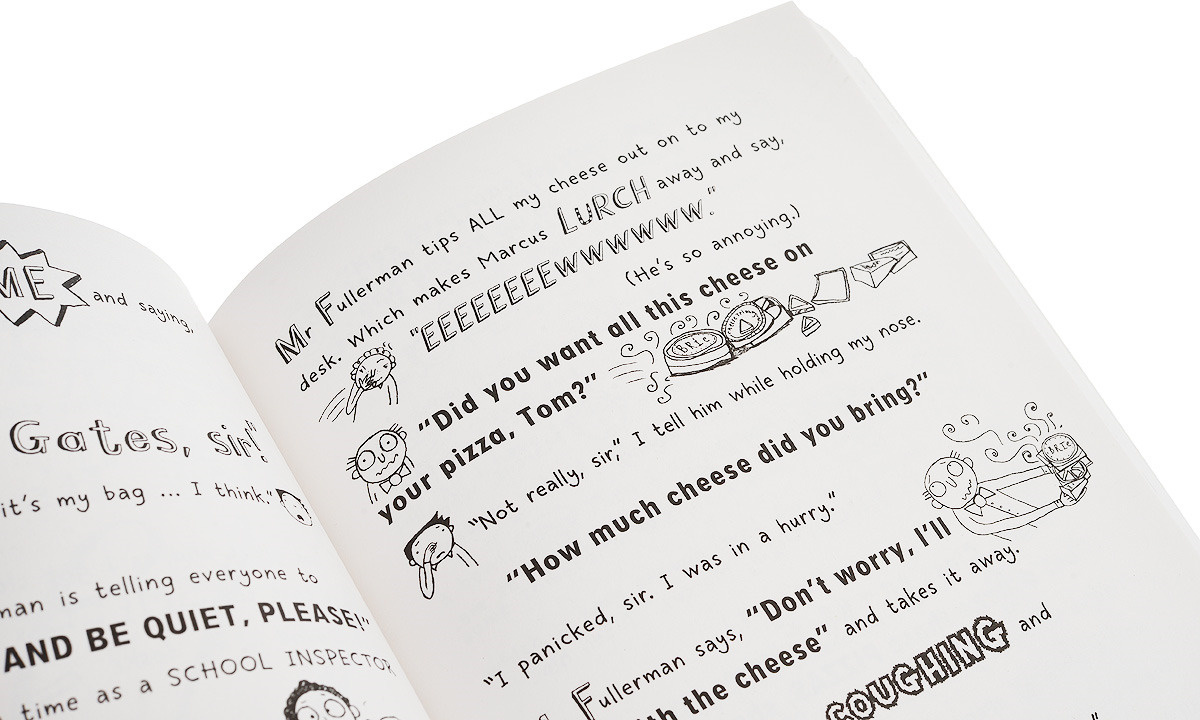 ME and saying,
Gates, sir!"
it's my bag ... I think."
is telling everyone to
AND BE QUIET, PLEASE!"
time as a SCHOOL INSPECTOR
Mr Fullerman tips ALL my cheese out on to my
desk. Which makes Marcus LURCH away and say,
"EEEEEEEEwwwwww."
(He's so annoying.)
"Did you want all this cheese on
your pizza, Tom?"
BRIE
"Not really, sir," I tell him while holding my nose.
"How much cheese did you bring?"
BRIE
"I panicked, sir. I was in a hurry."
Fullerman says, "Don't worry, I'll
the cheese" and takes it away.
COUGHING and